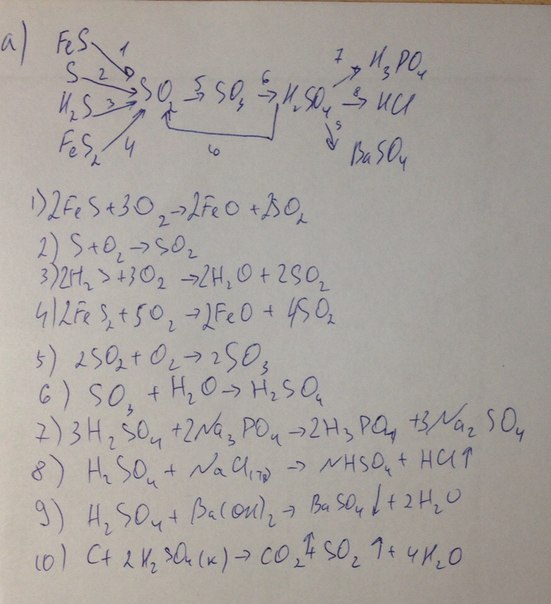 а)
FeS 1
S 2
H₂S 3
FeS₂ 4
SO₂ →5 SO₃ →6 H₂SO₄
7 H₃PO₄
8 HCl
9 BaSO₄
10
1) 2FeS + 3O₂ → 2FeO + 2SO₂
2) S + O₂ → SO₂
3) 2H₂S + 3O₂ → 2H₂O + 2SO₂
4) 2FeS₂ + 5O₂ → 2FeO + 4SO₂
5) 2SO₂ + O₂ → 2SO₃
6) SO₃ + H₂O → H₂SO₄
7) 3H₂SO₄ + 2Na₃PO₄ → 2H₃PO₄ + 3Na₂SO₄
8) H₂SO₄ + NaCl(тв) → NHSO₄ + HCl↑
9) H₂SO₄ + Ba(OH)₂ → BaSO₄↓ + 2H₂O
10) C + 2H₂SO₄(к) → CO₂↑ + SO₂↑ + 4H₂O